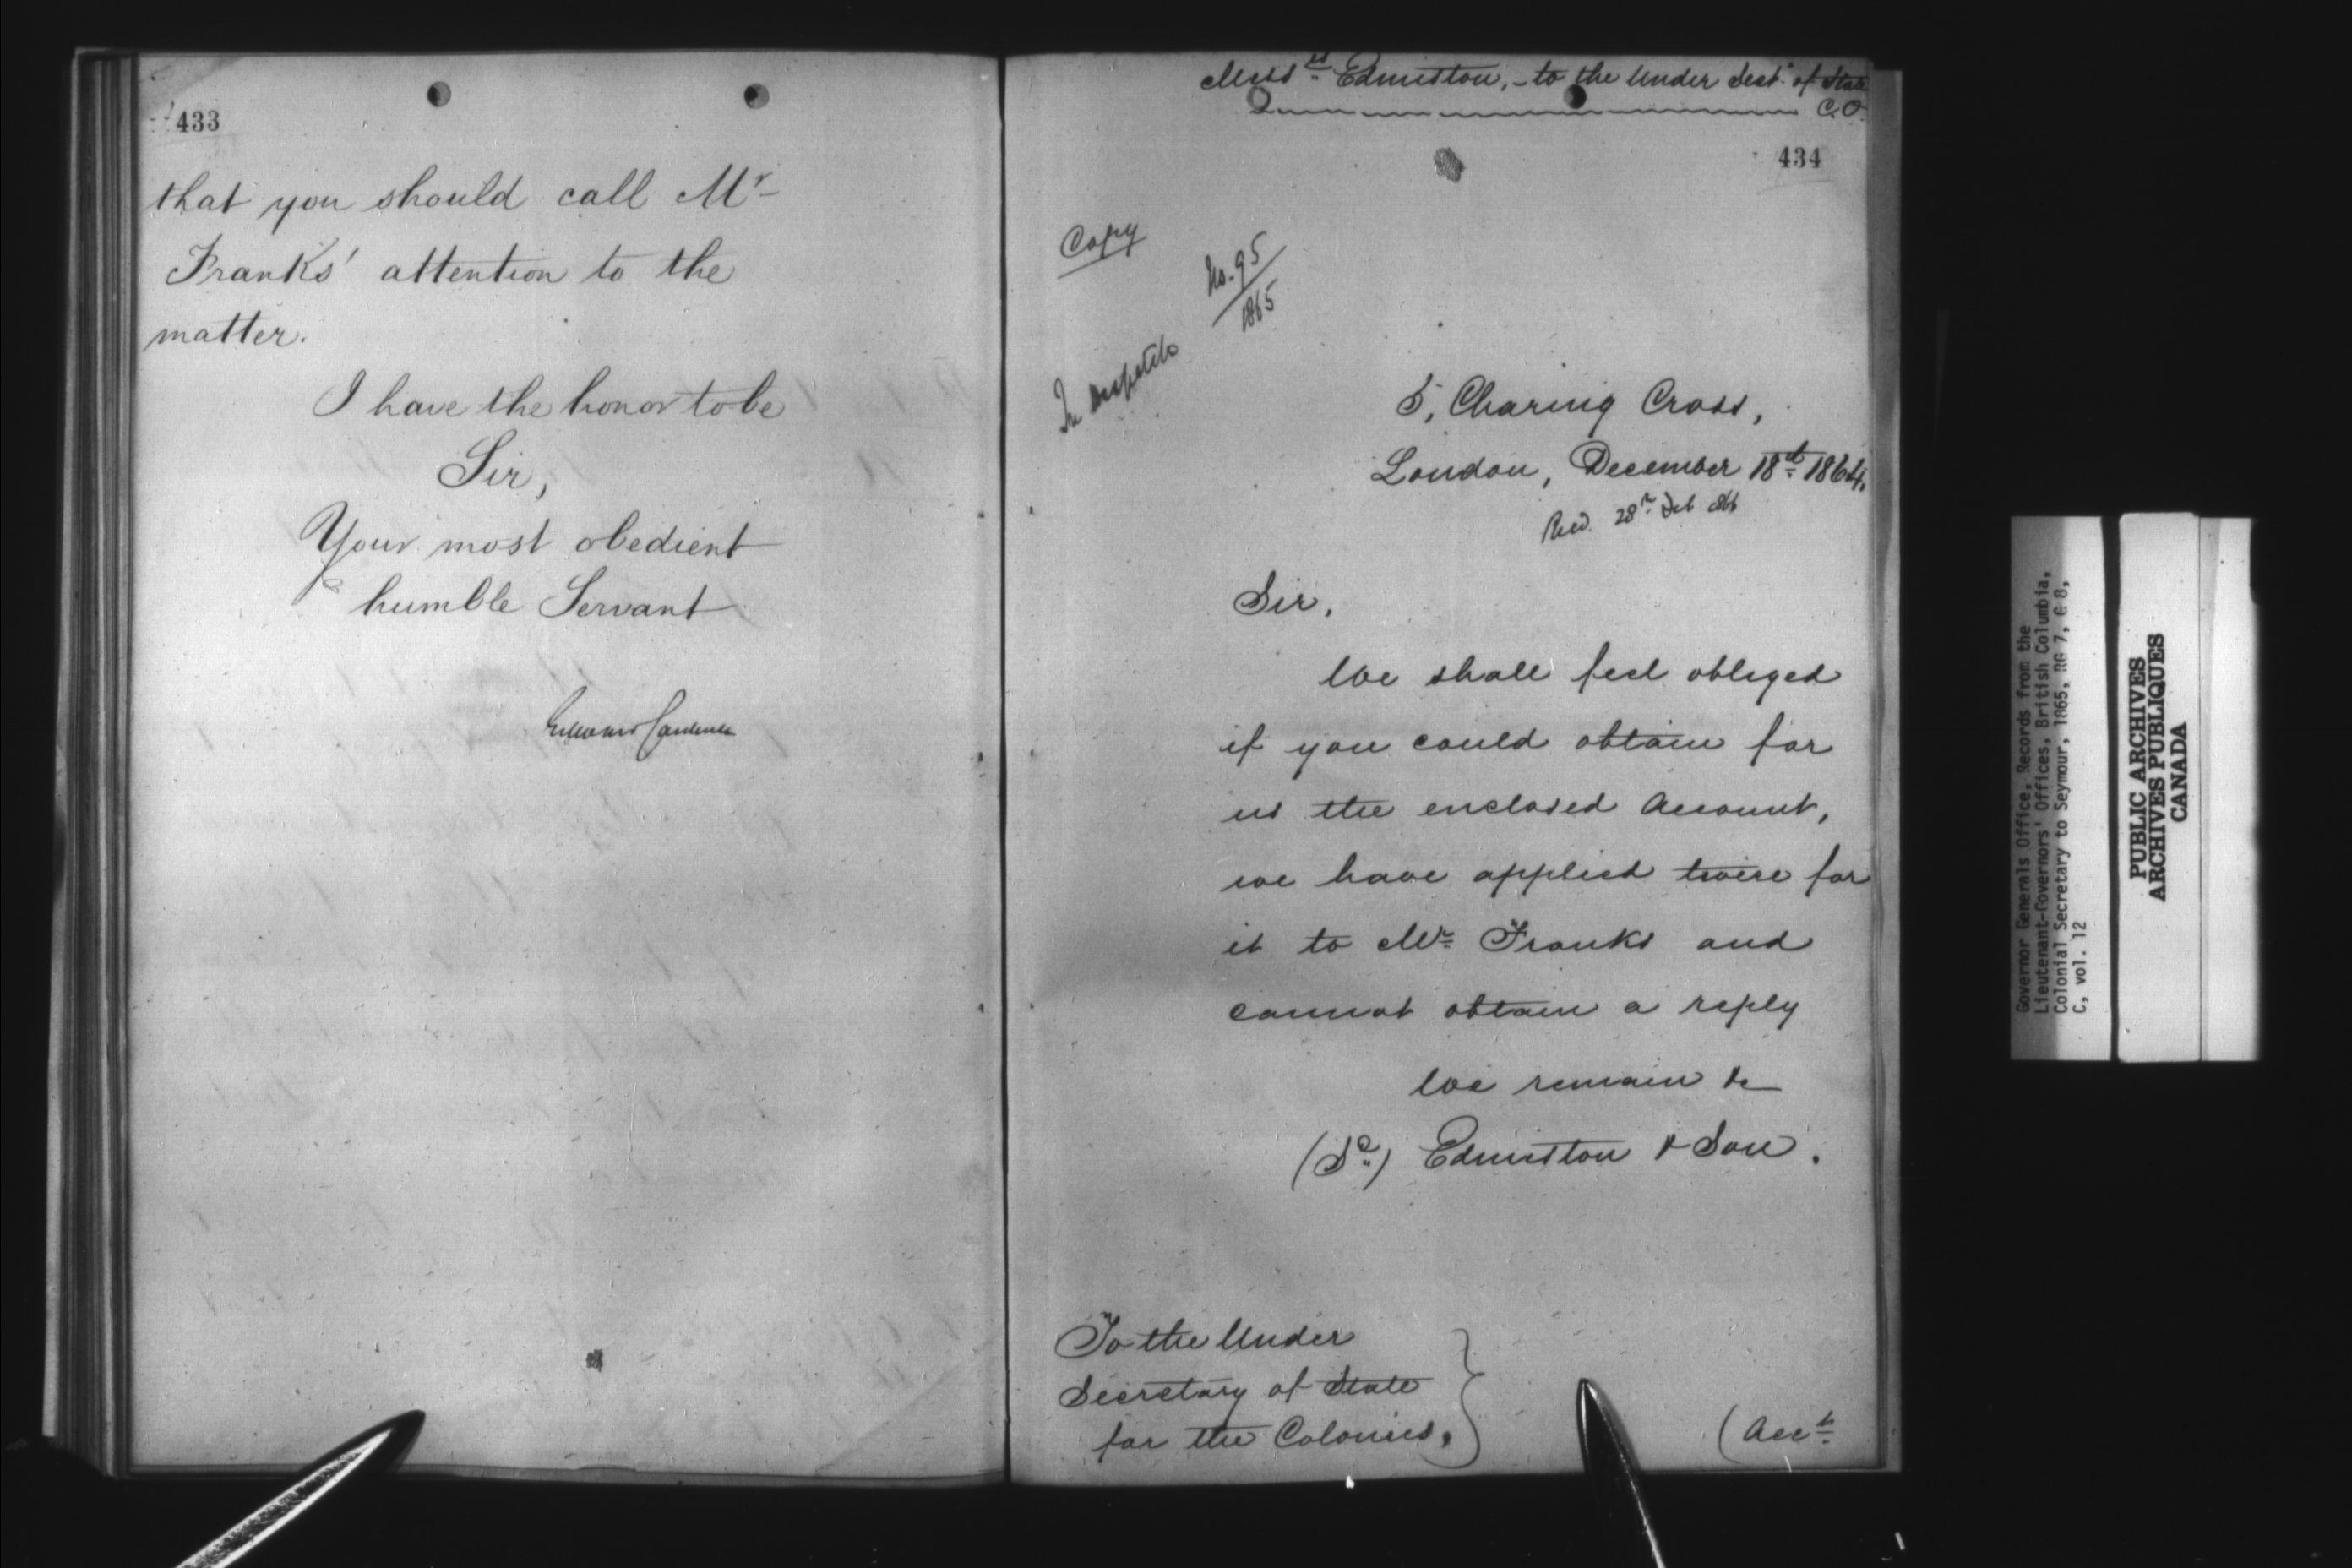 433
that you should call Mr
Franks' attention to the
matter.
I have the honor to be
Sir,
Your most obedient
humble Servant
Edward Cardwell
Messrs Edmiston, - to the Under Secy of State
C.O.
434
Copy
No. 95
1865
In Despatch
5, Charing Cross,
London, December 18th 1864.
Recd. 28th
Sir,
We shall feel obliged
if you could obtain for
us the enclosed Account,
we have applied twice for
it to Mr Franks and
cannot obtain a reply
We remain &c
(Sd) Edmiston & Son.
To the Under
Secretary of State
for the Colonies,
(Acct
Governor Generals Office, Records from the
Lieutenant-Governors' Offices, British Columbia,
Colonial Secretary to Seymour, 1865, RG 7, G 8,
C, vol. 12
PUBLIC ARCHIVES
ARCHIVES PUBLIQUES
CANADA